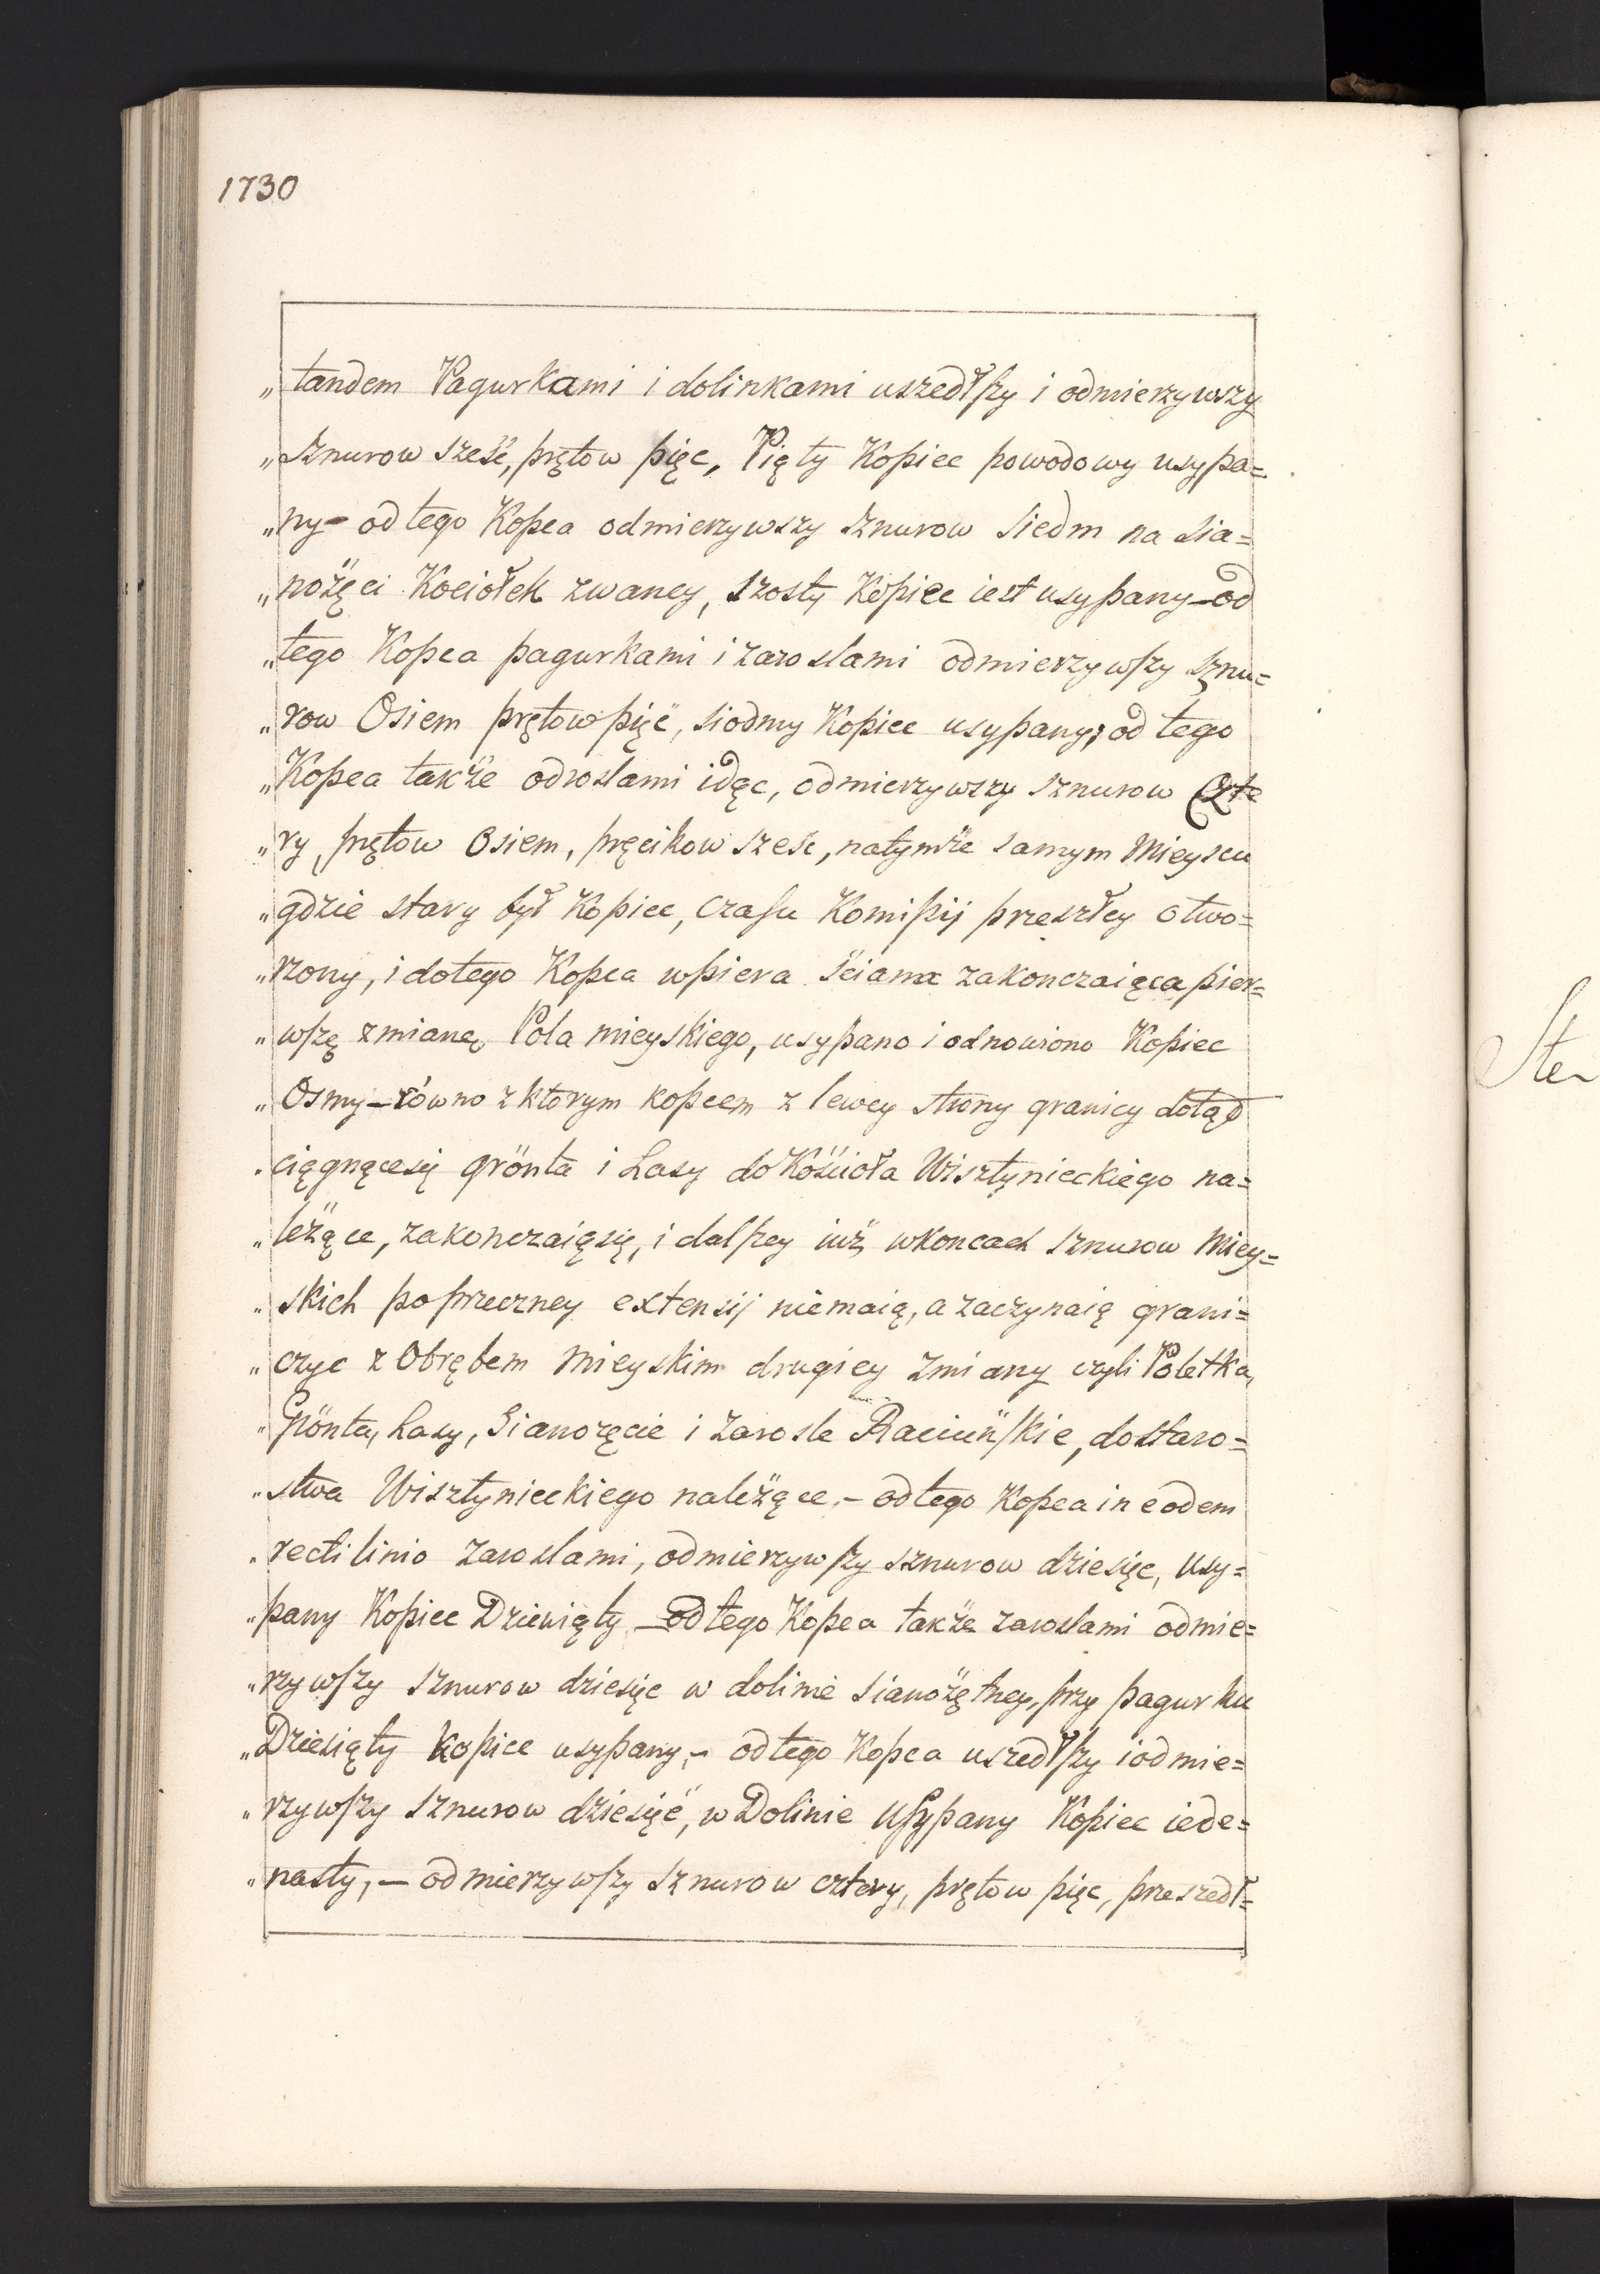 1730
„tandem Pagurkami i dolinkami uszedłſzy i odmierzywszy
„Sznurow sześć, prętow pięc, Piąty Kopiec powodowy usypa=
„ny - od tego Kopca odmierzywszy Sznurow Siedm na Sia=
„nożęci Kociołek zwaney, szosty Kopiec iest usypany - od
„tego Kopca pagurkami i zaroslami odmierzywſzy Sznu=
„row Osiem prętow pięć, siodmy Kopiec usypany; od tego
„Kopca także odroslami idąc, odmierzywszy sznurow Czte
„ry, prętow Osiem, pręcikow szesc, natymże samym Mieyscu
„gdzie stary był Kopiec, czaſu Komiſsij przeszłey otwo=
„rzony, i dotego Kopca wpiera sciana zakonczaiąca pier=
„wſzą zmianę Pola mieyskiego, usypano i odnowiono Kopiec
„Osmy - równo z ktorym kopcem z lewey strony granicy dotąd
„ciągnącesię grönta i Lasy do Kościoła Wisztynieckiego na=
„leżące, zakonczaiąsię, i dalſzey iuż wkoncach sznurow Miey=
„skich poprzeczney extensij niemaią, a zaczynaią grani=
„czyc z Obrębem Mieyskim drugiey zmiany czyli Poletka,
„Grönta, Lasy, Sianozęcie i zarosle Raciuńſkie, dostaro=
„stwa Wisztynieckiego należące, - odtego Kopca in eodem
„rectilinio zaroslami, odmierzywſzy sznurow dziesięc, Usy=
„pany Kopiec Dziewiąty - odtego Kopca także zaroslami odmie=
„rzywſzy Sznurow dziesięc w dolinie sianożętney, przy pagurku
„Dziesiąty Kopiec usypany, - odtego Kopca uszedłſzy iodmie=
„rzywſzy Sznurow dziesięć, w Dolinie Uſypany Kopiec iede=
„nasty, - odmierzywſzy Sznurow cztery, prętow pięc, przeszedł=
Ste